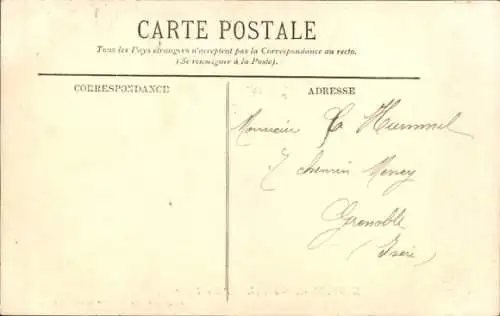 CARTE POSTALE
Tous les Pays étrangers n'acceptent pas la Correspondance au recto.
(Se renseigner à la Poste).
CORRESPONDANCE
ADRESSE
Monsieur C Hummel
7 chemin
Grenoble
(Isère)